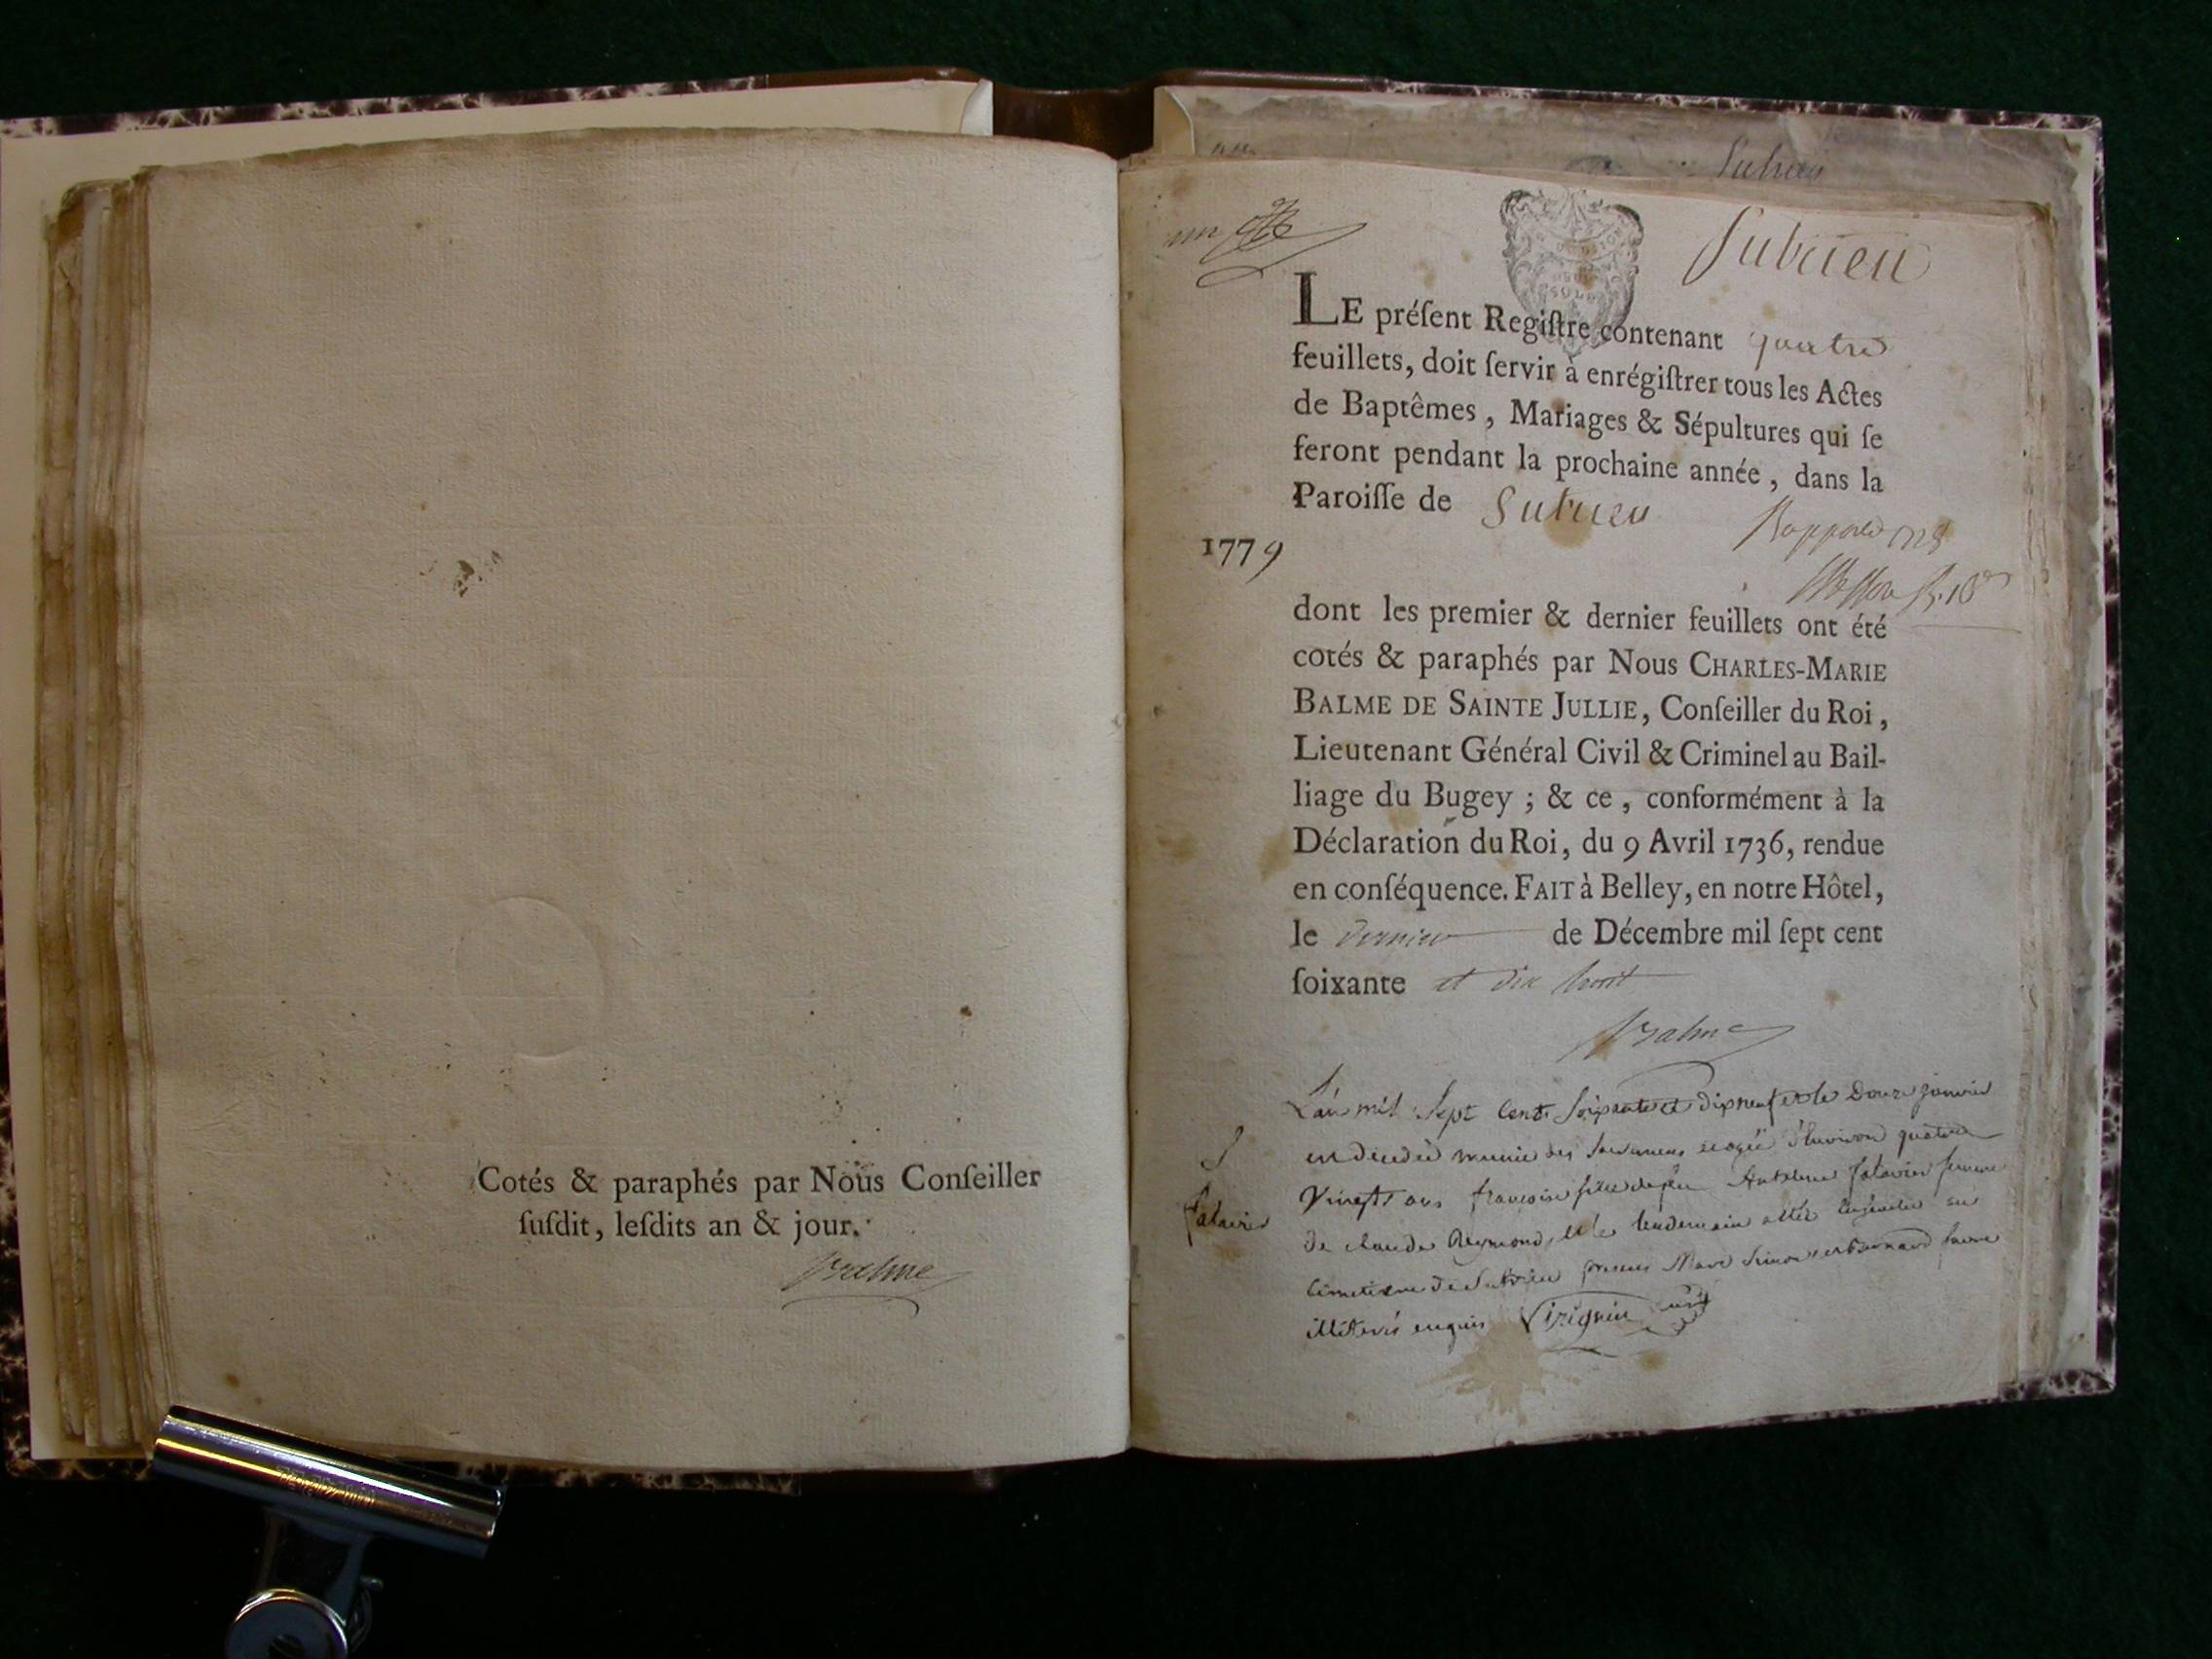 Cotés & paraphés par Nous Conſeiller
ſuſdit, leſdits an & jour.
Balme
un
Sutrieu
LE préſent Regiſtre contenant quatre
feuillets, doit ſervir à enrégiſtrer tous les Actes
de Baptêmes, Mariages & Sépultures qui ſe
feront pendant la prochaine année, dans la
Paroiſſe de Sutrieu
1779
dont les premier & dernier feuillets ont été
cotés & paraphés par Nous CHARLES-MARIE
BALME DE SAINTE JULLIE, Conſeiller du Roi,
Lieutenant Général Civil & Criminel au Bail-
liage du Bugey ; & ce, conformément à la
Déclaration du Roi, du 9 Avril 1736, rendue
en conſéquence. FAIT à Belley, en notre Hôtel,
le dernier de Décembre mil ſept cent
ſoixante et dix huit
Balme
L'an mil Sept Cent Soixante et dix neuf et le Douze janvier
est décédée munie des Sacremens agée d'environ quatre
Vingts ans françoise fille de feu Anthelme falavier femme
De claude Reymond, et le lendemain a été
Cimetiere de Sutrieu presens Marc Simon et Bernard
illiterés enquis Virignin curé
S
falavier